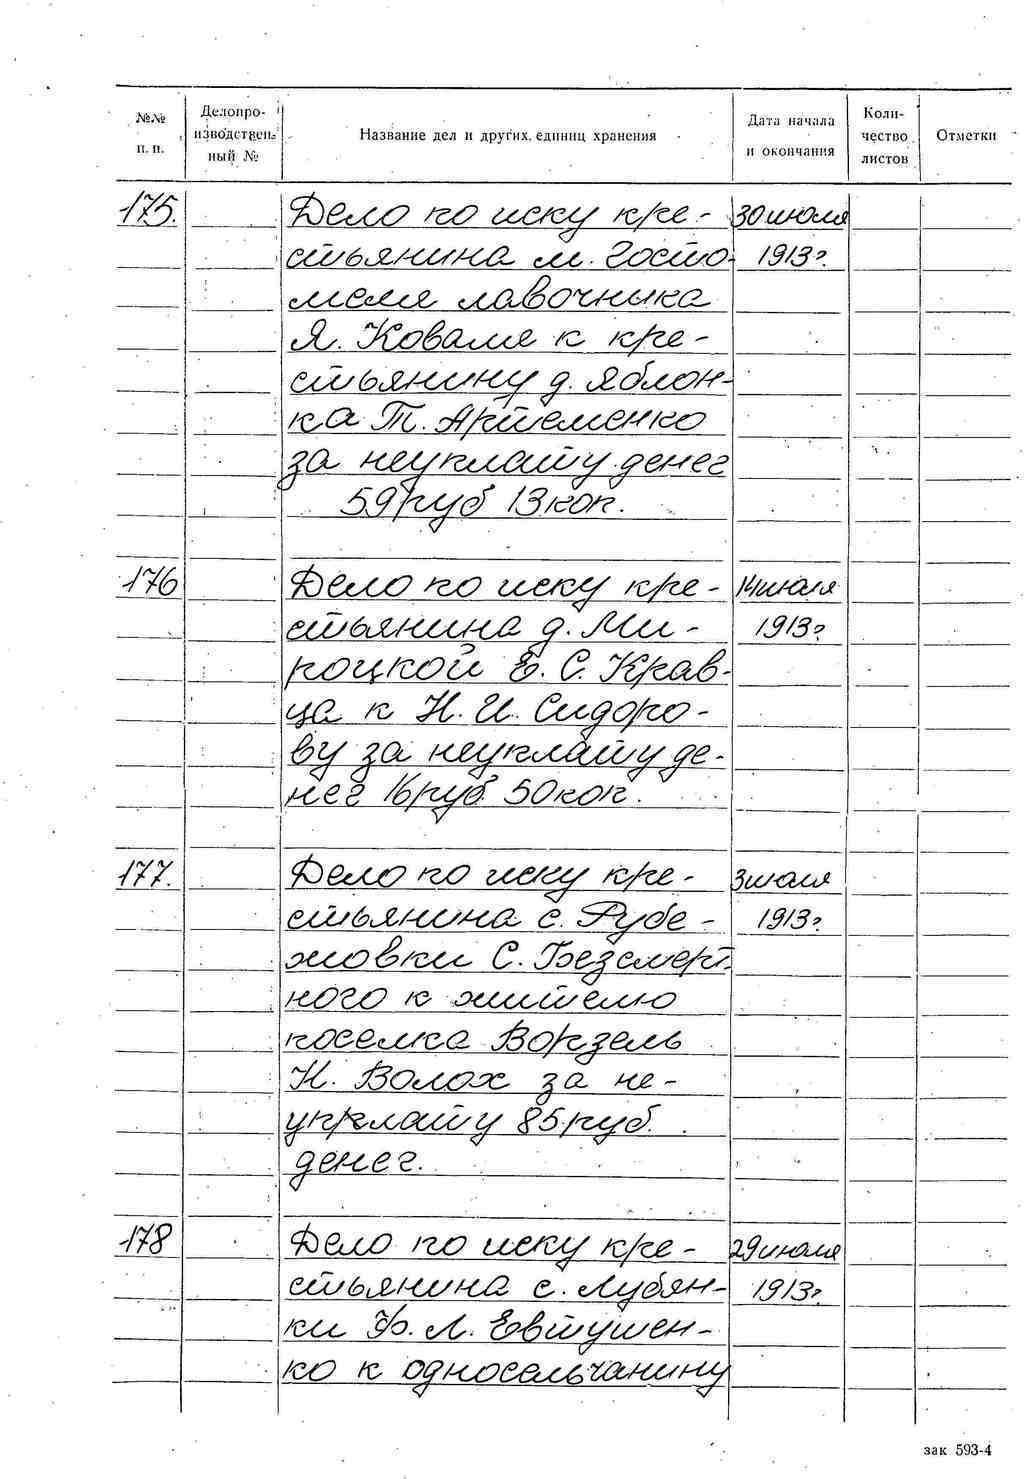 №№ п. п.
Делопроизводствен­ный №
Название дел и других единиц хранения
Дата начала и окончания
Количество листов
Отметки
175. Дело по иску кре- 30 июля
стьянина м. Госто- 1913г.
меля лавочника
Я. Коваля к кре-
стьянину д. Яблон-
ка Т. Артеменко
за неуплату денег
59 руб 13 коп.
176 Дело по иску кре- 14 июля
стьянина д. Ми- 1913г
роцкой Е. С. Крав-
ца к Н. И. Сидоро-
ву за неуплату де-
нег 16 руб 50 коп.
177. Дело по иску кре- 3 июля
стьянина с. Рубе- 1913г
жовки С. Безсмерт-
ного к жителю
поселка Ворзель
Н. Волох за не-
уплату 85 руб.
денег.
178 Дело по иску кре- 29 июля
стьянина с. Лубян- 1913г
ки Ф. Л. Евтушен-
ко к односельчанину
зак 593-4